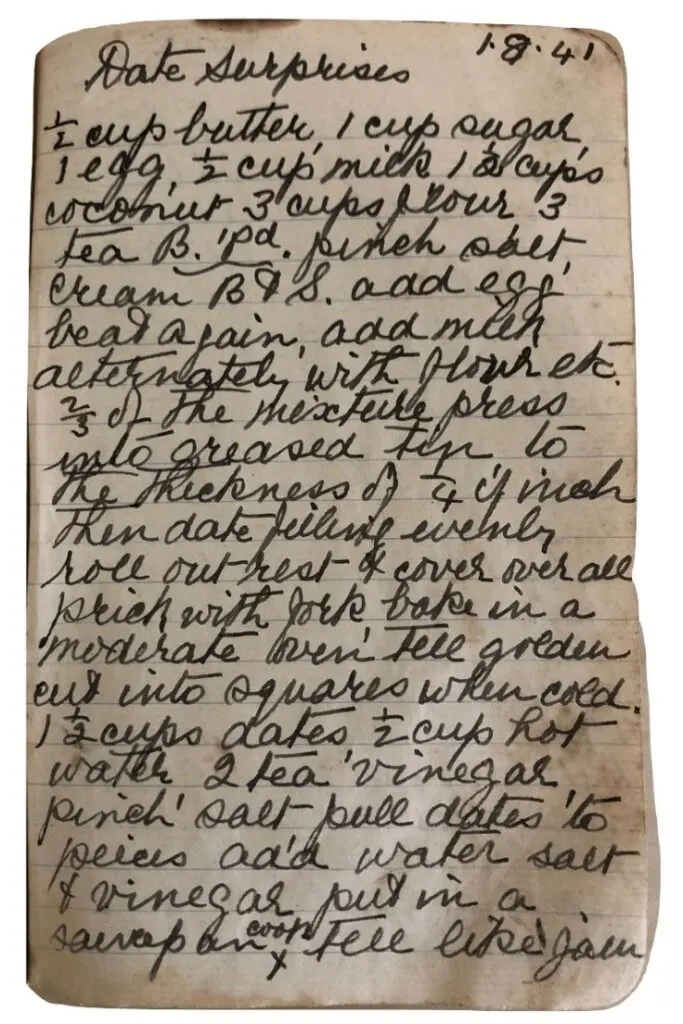 1.8.41
Date Surprises
½ cup butter, 1 cup sugar,
1 egg, ½ cup milk 1½ cups
coconut 3 cups flour 3
tea B. Pd. pinch salt,
cream B & S. add egg
beat again, add milk
alternately with flour etc.
⅔ of the mixture press
into greased tin to
the thickness of ¼ of inch
then date filling evenly
roll out rest & cover over all
prick with fork bake in a
moderate oven tell golden
cut into squares when cold.
1½ cups dates ½ cup hot
water 2 tea vinegar
pinch salt pull dates to
peices add water salt
& vinegar put in a
saucepan cook tell like jam